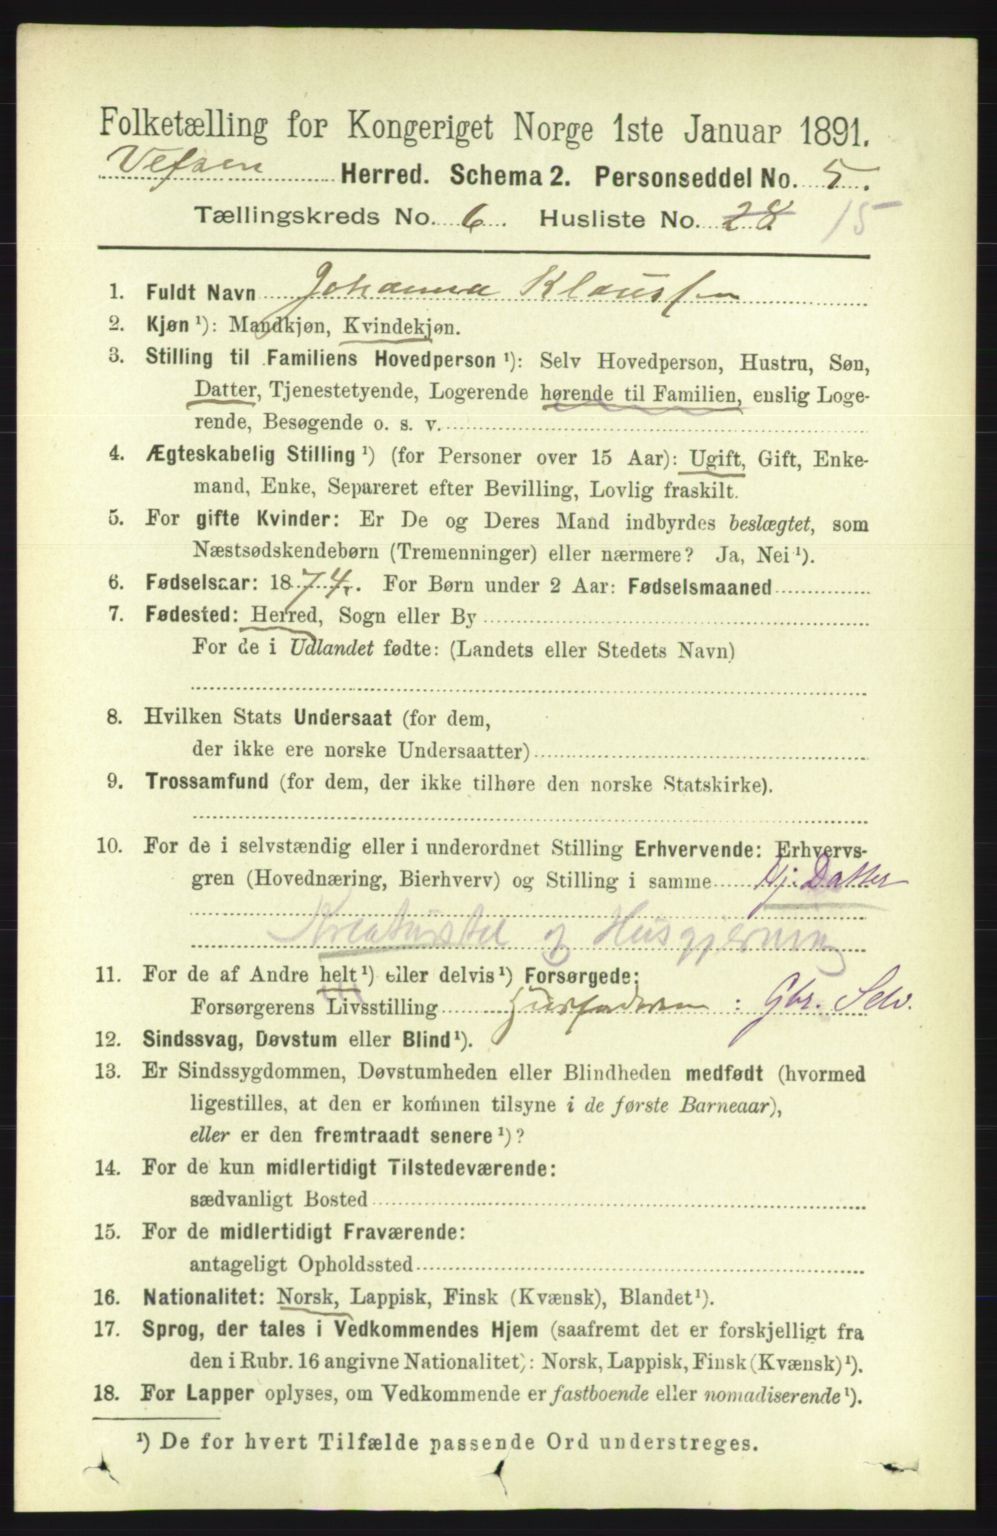 Folketælling for Kongeriget Norge 1ste Januar 1891.
Vefsen Herred. Schema 2. Personseddel No. 5.
Tællingskreds No. 6. Husliste No. 28 15
1. Fuldt Navn Johanna Klaussen
2. Kjøn ¹): Mandkjøn, Kvindekjøn.
3. Stilling til Familiens Hovedperson ¹): Selv Hovedperson, Hustru, Søn,
Datter, Tjenestetyende, Logerende hørende til Familien, enslig Loge-
rende, Besøgende o. s. v.
4. Ægteskabelig Stilling ¹) (for Personer over 15 Aar): Ugift, Gift, Enke-
mand, Enke, Separeret efter Bevilling, Lovlig fraskilt.
5. For gifte Kvinder: Er De og Deres Mand indbyrdes beslægtet, som
Næstsødskendebørn (Tremenninger) eller nærmere? Ja, Nei ¹).
6. Fødselsaar: 1874. For Børn under 2 Aar: Fødselsmaaned
7. Fødested: Herred, Sogn eller By
For de i Udlandet fødte: (Landets eller Stedets Navn)
8. Hvilken Stats Undersaat (for dem,
der ikke ere norske Undersaatter)
9. Trossamfund (for dem, der ikke tilhøre den norske Statskirke).
10. For de i selvstændig eller i underordnet Stilling Erhvervende: Erhvervs-
gren (Hovednæring, Bierhverv) og Stilling i samme Hj. Datter
Kreaturstel og Husgjerning
11. For de af Andre helt ¹) eller delvis ¹) Forsørgede:
Forsørgerens Livsstilling Husfaderen : Gbr. Selv.
12. Sindssvag, Døvstum eller Blind ¹).
13. Er Sindssygdommen, Døvstumheden eller Blindheden medfødt (hvormed
ligestilles, at den er kommen tilsyne i de første Barneaar),
eller er den fremtraadt senere ¹)?
14. For de kun midlertidigt Tilstedeværende:
sædvanligt Bosted
15. For de midlertidigt Fraværende:
antageligt Opholdssted
16. Nationalitet: Norsk, Lappisk, Finsk (Kvænsk), Blandet ¹).
17. Sprog, der tales i Vedkommendes Hjem (saafremt det er forskjelligt fra
den i Rubr. 16 angivne Nationalitet): Norsk, Lappisk, Finsk (Kvænsk) ¹).
18. For Lapper oplyses, om Vedkommende er fastboende eller nomadiserende ¹).
¹) De for hvert Tilfælde passende Ord understreges.